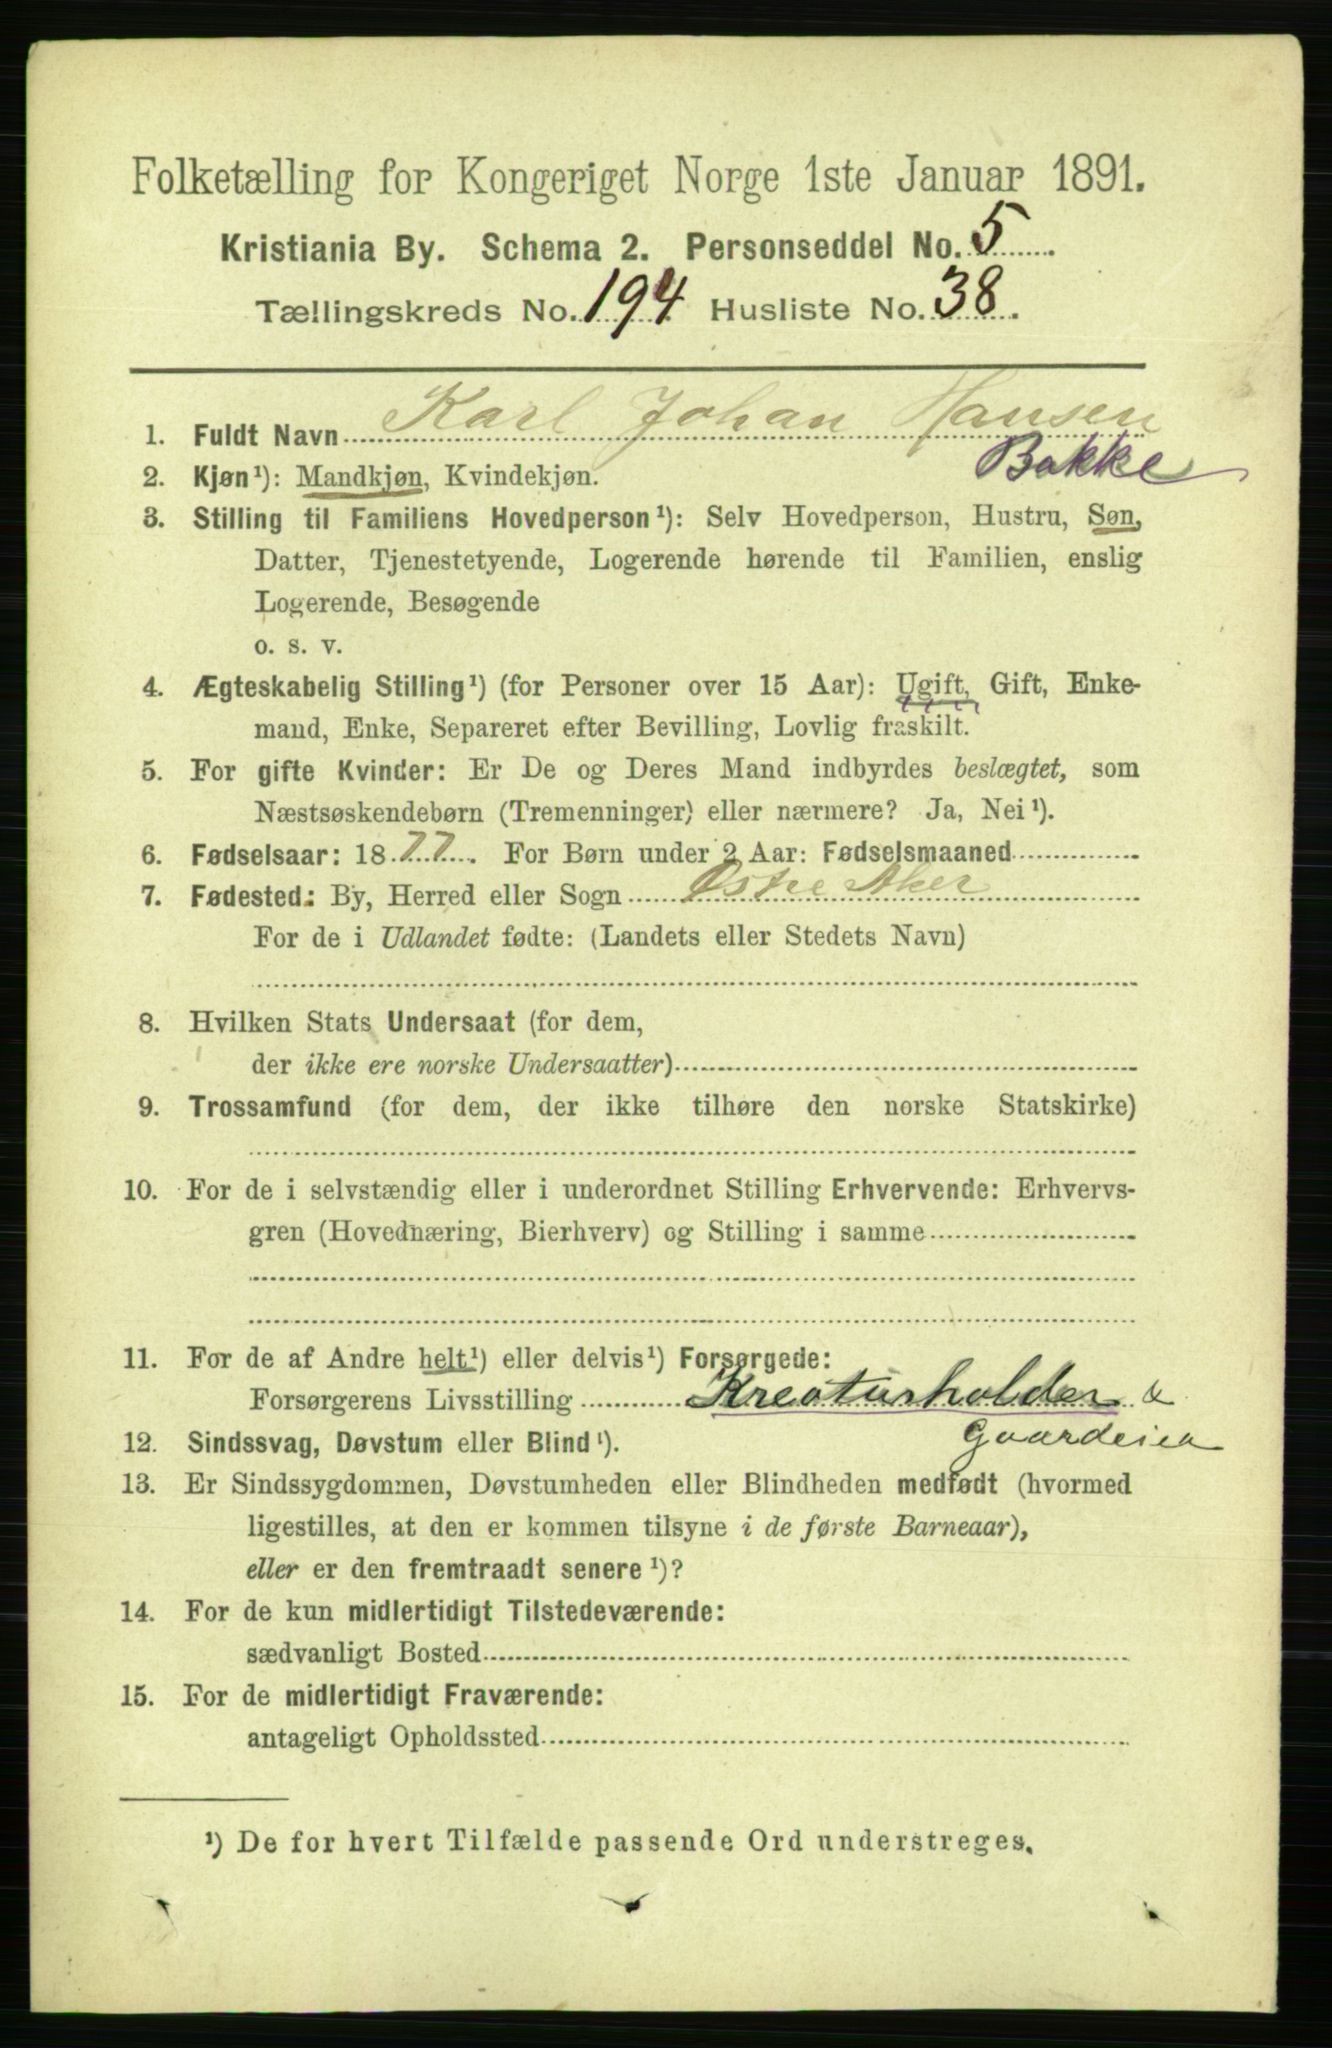 Folketælling for Kongeriget Norge 1ste Januar 1891.
Kristiania By. Schema 2. Personseddel No. 5
Tællingskreds No. 194 Husliste No. 38.
1. Fuldt Navn Karl Johan Hansen
Bakke
2. Kjøn¹): Mandkjøn, Kvindekjøn.
3. Stilling til Familiens Hovedperson¹): Selv Hovedperson, Hustru, Søn,
Datter, Tjenestetyende, Logerende hørende til Familien, enslig
Logerende, Besøgende
o. s. v.
4. Ægteskabelig Stilling¹) (for Personer over 15 Aar): Ugift, Gift, Enke-
mand, Enke, Separeret efter Bevilling, Lovlig fraskilt.
5. For gifte Kvinder: Er De og Deres Mand indbyrdes beslægtet, som
Næstsøskendebørn (Tremenninger) eller nærmere? Ja, Nei¹).
6. Fødselsaar: 1877. For Børn under 2 Aar: Fødselsmaaned
7. Fødested: By, Herred eller Sogn Østre Aker
For de i Udlandet fødte: (Landets eller Stedets Navn)
8. Hvilken Stats Undersaat (for dem,
der ikke ere norske Undersaatter)
9. Trossamfund (for dem, der ikke tilhøre den norske Statskirke)
10. For de i selvstændig eller i underordnet Stilling Erhvervende: Erhvervs-
gren (Hovednæring, Bierhverv) og Stilling i samme
11. For de af Andre helt¹) eller delvis¹) Forsørgede:
Forsørgerens Livsstilling Kreaturholder &
Gaardeier
12. Sindssvag, Døvstum eller Blind¹).
13. Er Sindssygdommen, Døvstumheden eller Blindheden medfødt (hvormed
ligestilles, at den er kommen tilsyne i de første Barneaar),
eller er den fremtraadt senere¹)?
14. For de kun midlertidigt Tilstedeværende:
sædvanligt Bosted
15. For de midlertidigt Fraværende:
antageligt Opholdssted
¹) De for hvert Tilfælde passende Ord understreges.